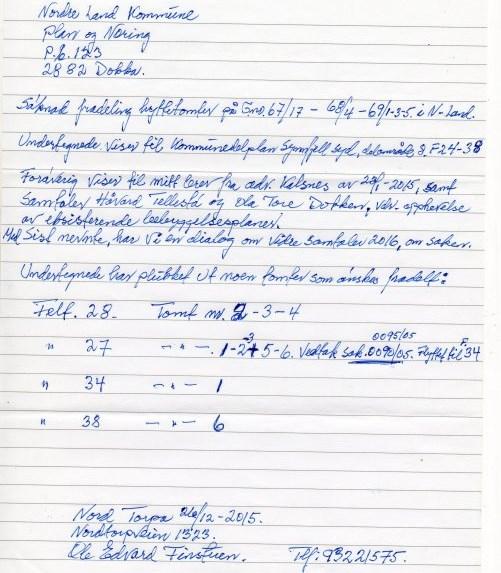 Nordre Land Kommune
Plan og Næring
P.b. 123
2882 Dokka.
Søknad fradeling hyttetomter på Gnr. 67/17 - 68/4 - 69/1-3-5 i N-Land.
Undertegnede viser til Kommunedelplan Synnfjell syd, delområde 8. F24-38
Forøvrig viser til mitt brev fra adv. Valsnes av 2015, samt
samtaler Håvard Tellefsø og Ola Tore Dokken, vdr. opphevelse
av eksisterende bebyggelsesplaner.
Med sist nevnte, har vi en dialog om videre samtaler 2016, om saken.
Undertegnede har plukket ut noen tomter som ønskes fradelt:
Felt. 28. Tomt nr. 2-3-4
" 27 — " — . 1-2-3 5-6. Vedtak sak. 0090/05. 0095/05 Flyttet til F. 34
" 34 — " — 1
" 38 — " — 6
Nord Torpa 26/12-2015.
Nordtorpveien 1323.
Ole Edvard Finstuen. Tlf: 93221575.